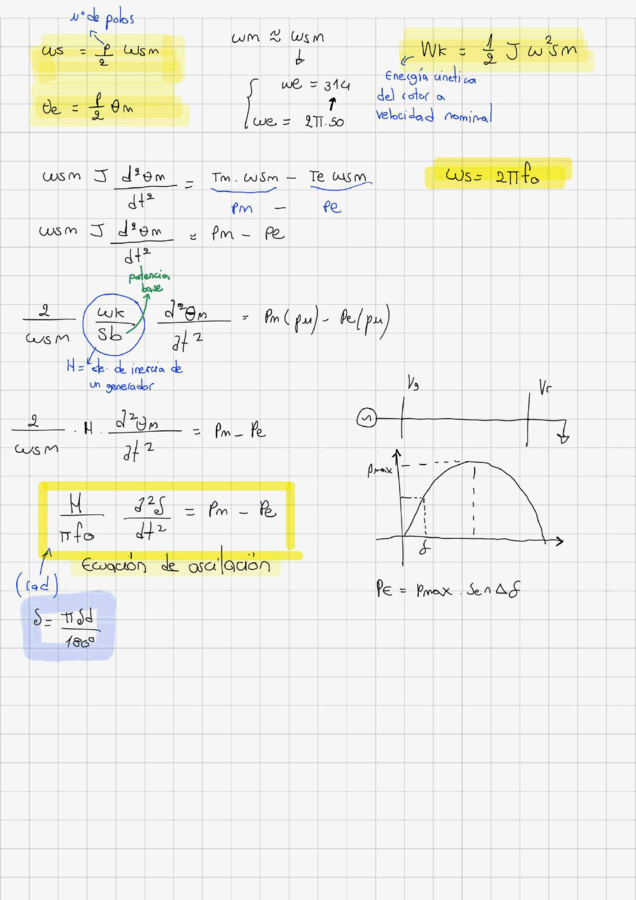 nº de polos
ωs = p/2 ωsm
θe = p/2 θm
ωm ≈ ωsm
ωe = 314
ωe = 2π.50
Wk = 1/2 J ω²sm
Energía cinetica
del rotor a
velocidad nominal
ωsm J d²θm/dt² = Tm. ωsm - Te ωsm
Pm - Pe
ωs = 2πfo
ωsm J d²θm/dt² = Pm - Pe
potencia
base
2/ωsm wk/Sb d²θm/dt² = Pm(pu) - Pe(pu)
H = cte. de inercia de
un generador
2/ωsm . H . d²θm/dt² = Pm - Pe
Vg
Vr
Pmax
δ
H/πfo d²δ/dt² = Pm - Pe
Ecuación de oscilación
(rad)
δ = πδd/180º
PE = Pmax . Sen Δδ